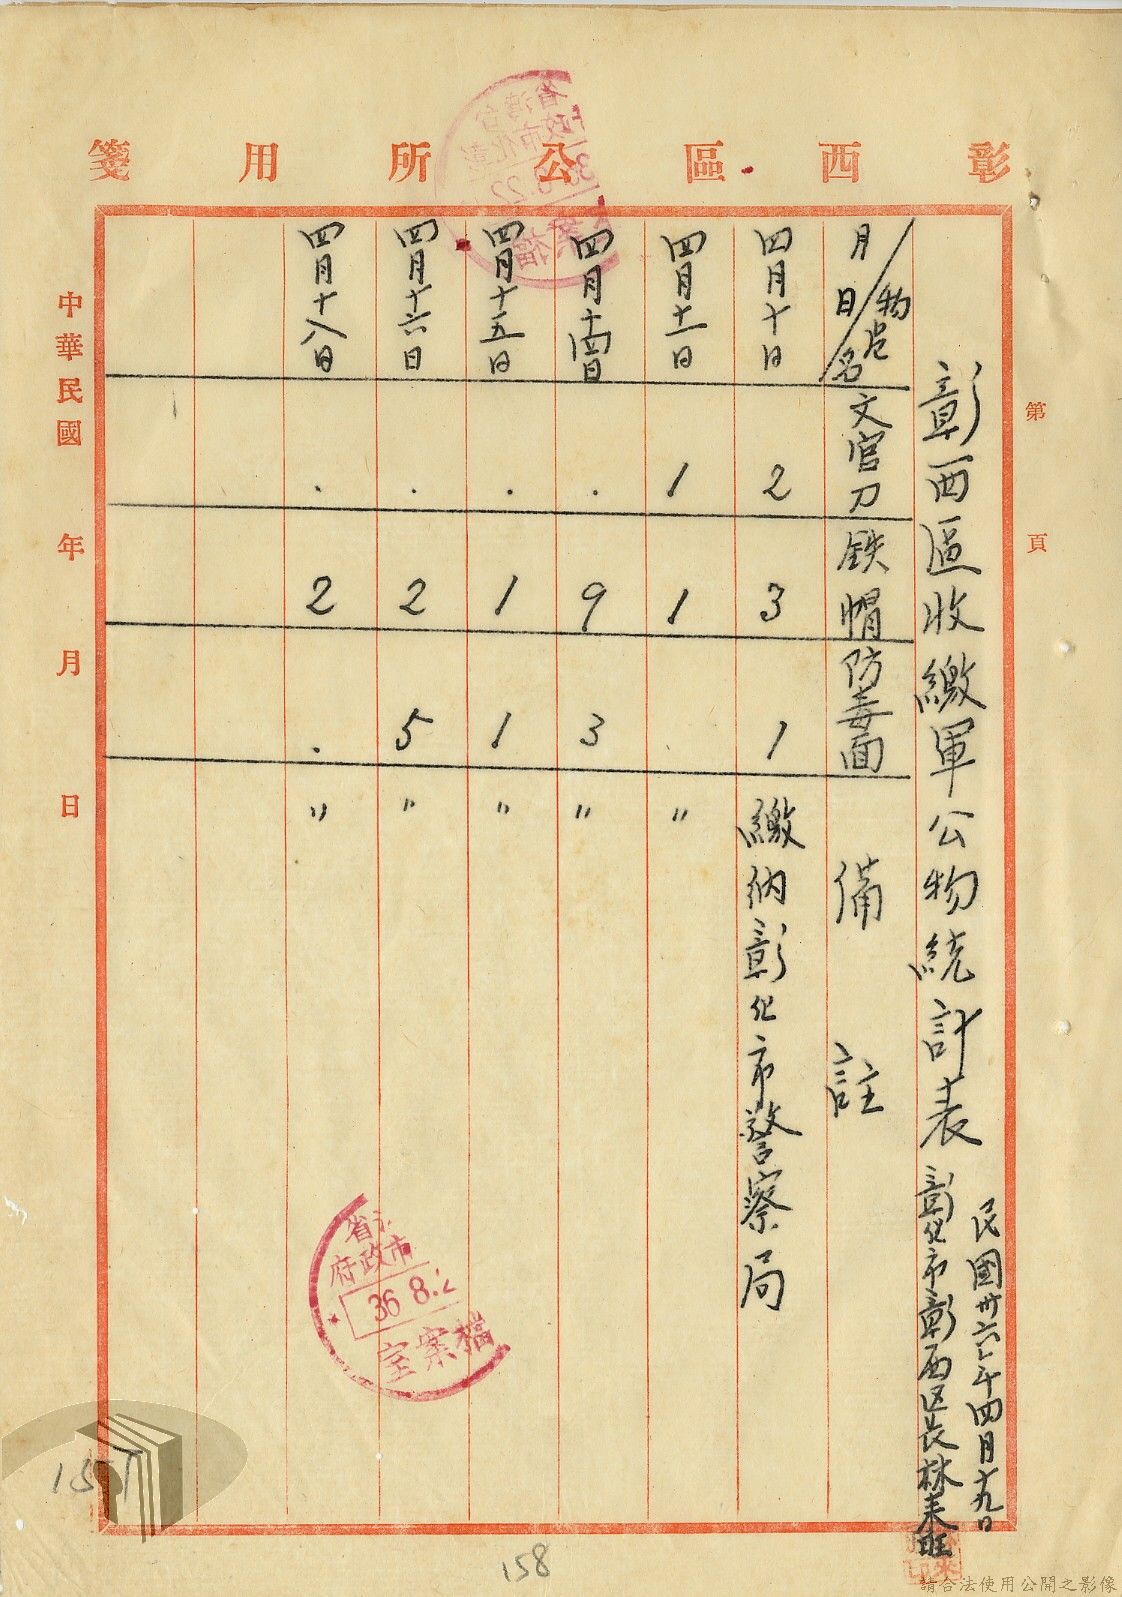 彰西區公所用箋
第 頁
彰西區收繳軍公物統計表
民國卅六年四月十九日
彰化市彰西区長林来旺
月日 物品名 文官刀 鉄帽 防毒面 備註
四月十日 2 3 1 繳納彰化市警察局
四月十一日 1 1 . 〃
四月十四日 . 9 3 〃
四月十五日 . 1 1 〃
四月十六日 . 2 5 〃
四月十八日 . 2 . 〃
中華民國 年 月 日
省
市政府
36 8.2
檔案室
158
請合法使用公開之影像